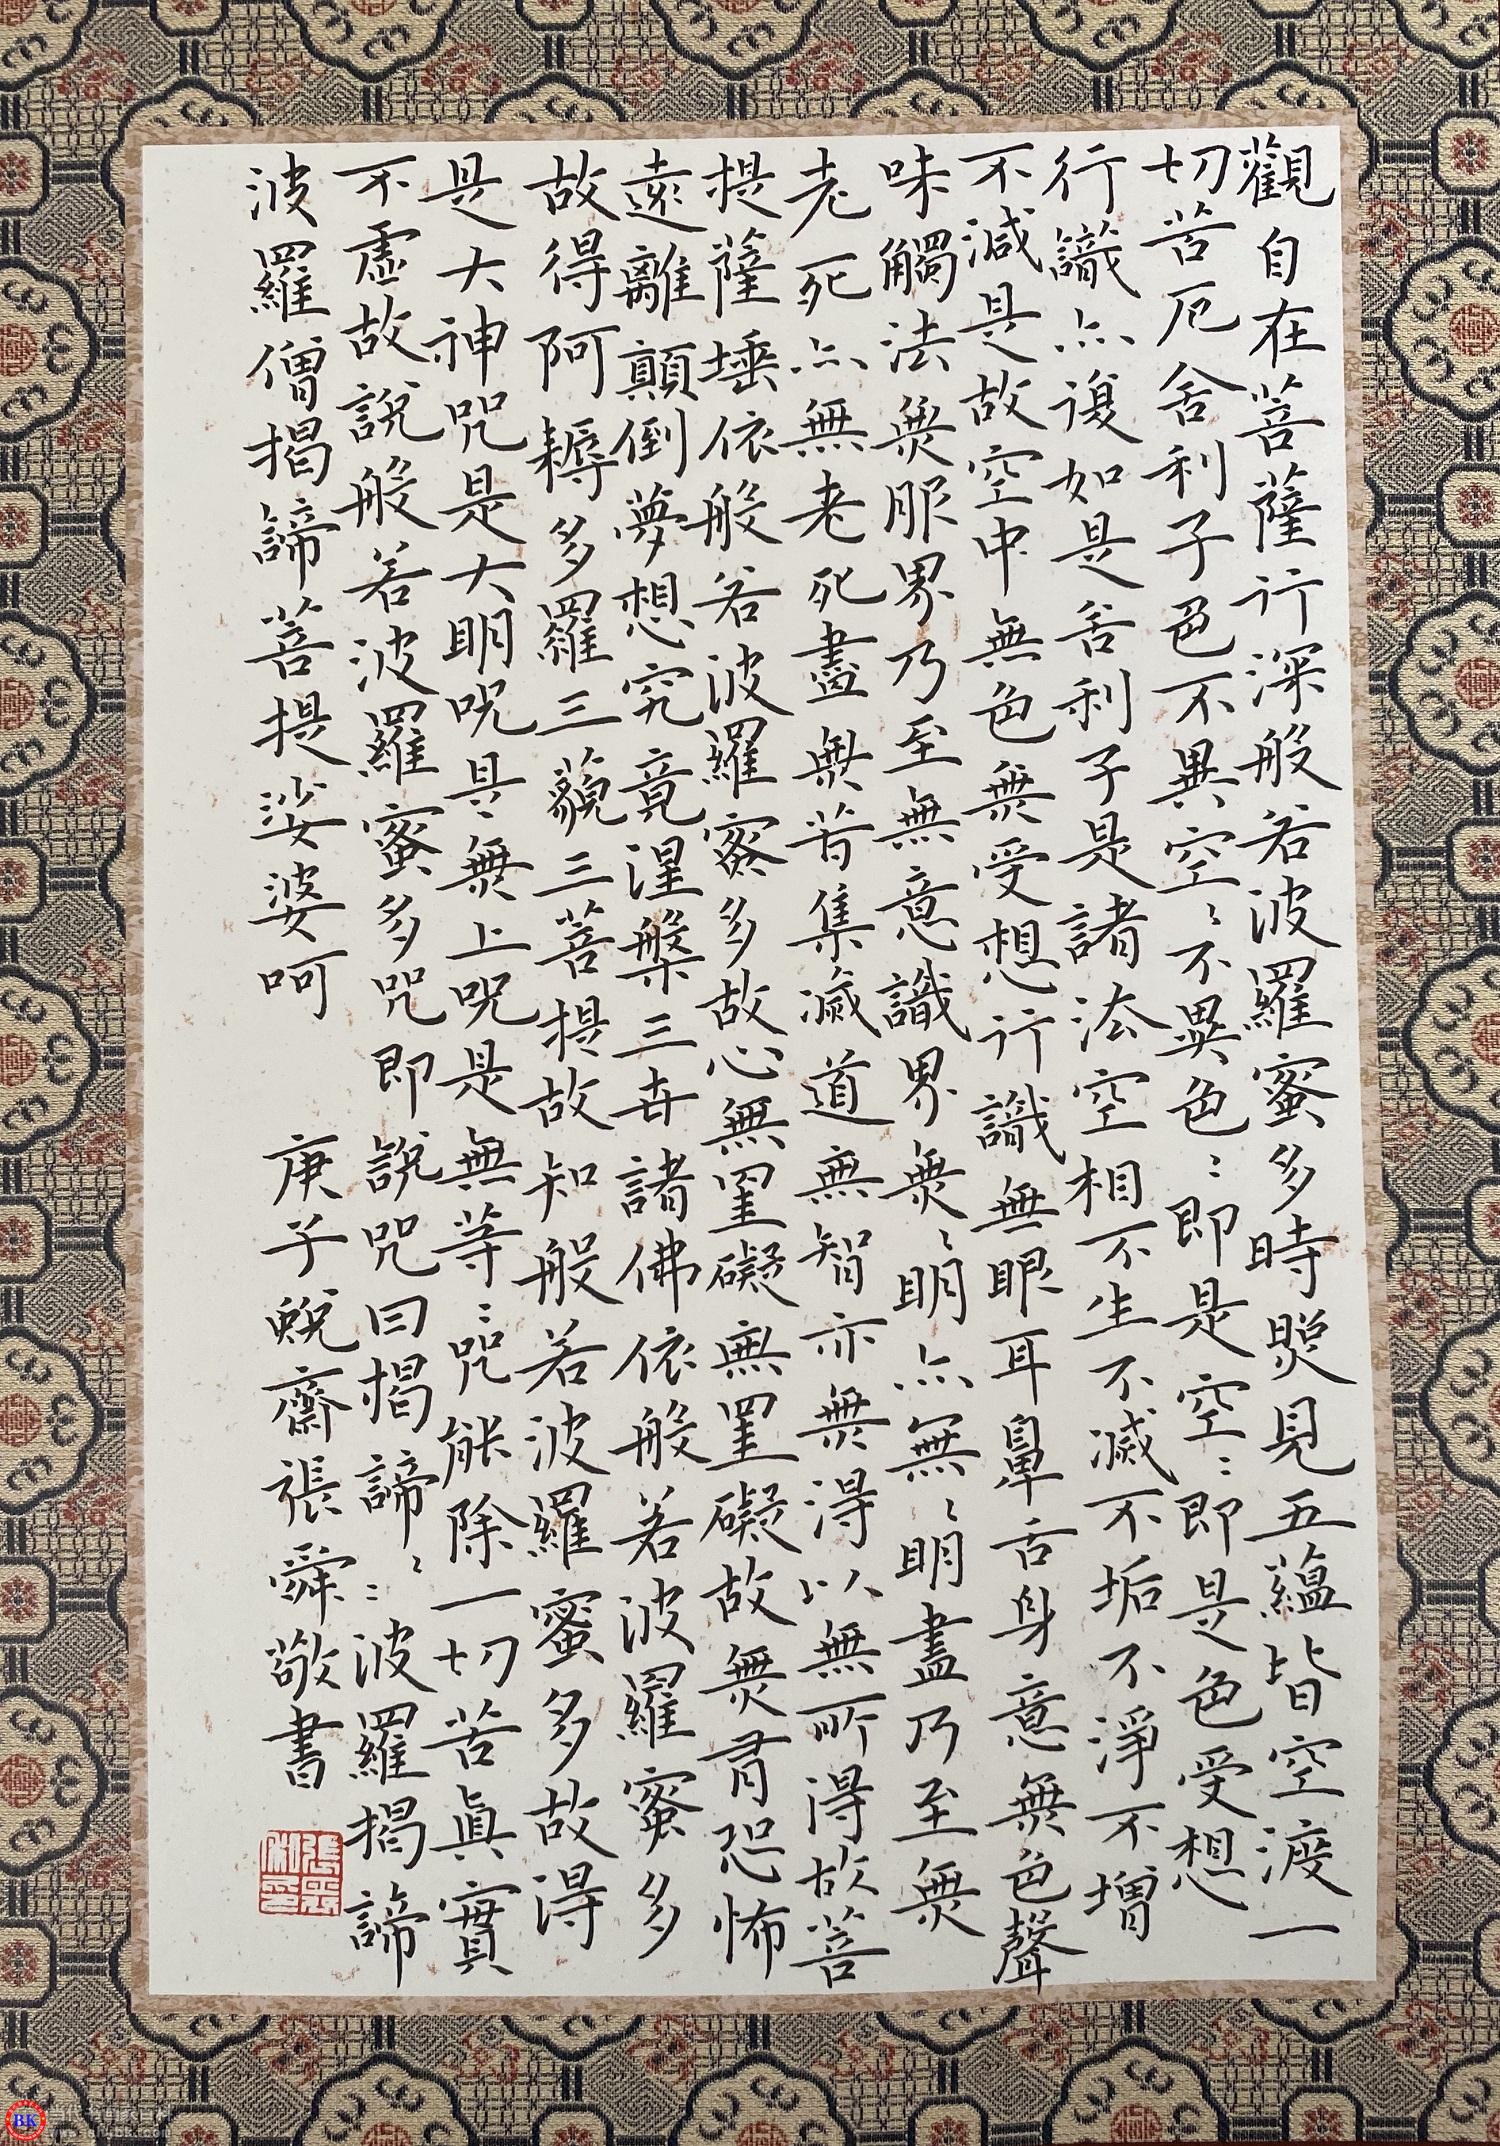 觀自在菩薩行深般若波羅蜜多時照見五蘊皆空渡一
切苦厄舍利子色不異空〻不異色〻即是空〻即是色受想
行識亦復如是舍利子是諸法空相不生不滅不垢不淨不增
不減是故空中無色無受想行識無眼耳鼻舌身意無色聲
味觸法無眼界乃至無意識界無〻明亦無〻明盡乃至無
老死亦無老死盡無苦集滅道無智亦無得以無所得故菩
提薩埵依般若波羅蜜多故心無罣礙無罣礙故無有恐怖
遠離顛倒夢想究竟涅槃三世諸佛依般若波羅蜜多
故得阿耨多羅三藐三菩提故知般若波羅蜜多故得
是大神咒是大明咒是無上咒是無等〻咒能除一切苦真實
不虛故說般若波羅蜜多咒即說咒曰揭諦〻〻波羅揭諦
波羅僧揭諦菩提娑婆呵 庚子蛻齋張舜敬書
BK